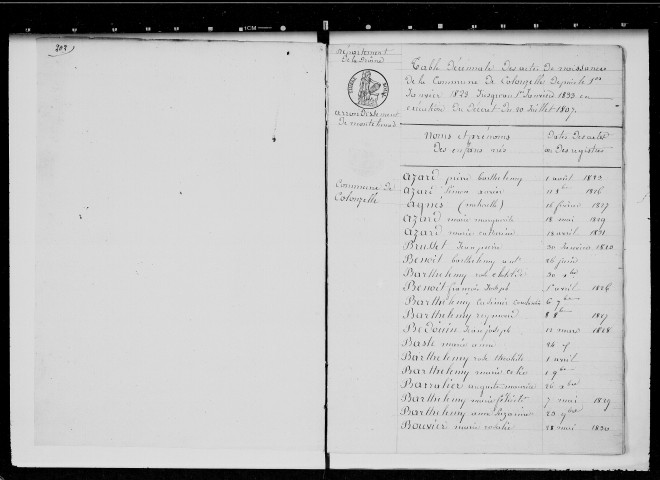 202
département
de la Drôme
arrondissement
de montelimar
Commune de
Colonzelle
Table Décennale Des actes De naissances
De la Commune De Colonzelle Depuis le 1er
Janvier 1823 Jusqu'au 1er Janvier 1833 en
exécution Du Décret Du 20 Juillet 1807.
Noms et prénoms
Des enfans nés
Dates Des actes
ou Des registres
Azard pierre barthelemy 1 août 1823
Azard Simon xavier 11 8bre 1826
Agnès 16 février 1827
Azard marie marguerite 18 mai 1829
Azard marie catherine 12 avril 1831
Brusset Jean pierre 30 Janvier
Benoit barthelemy 26 juin
Barthelemy 30
Benoit françois Joseph 1er avril 1826
Barthelemy casimir constantin 6 7bre
Barthelemy reymond 8 8bre 1827
Bedouin Jean joseph 11 mars 1828
Baste marie anne 26
Barthelemy rose 1 avril
Barthelemy marie 1 9bre
Barratier auguste maurice 26
Barthelemy marie félicité 7 mai 1829
Barthelemy anne Suzanne 23 9bre
Bouvier marie rosalie 28 mai 1830